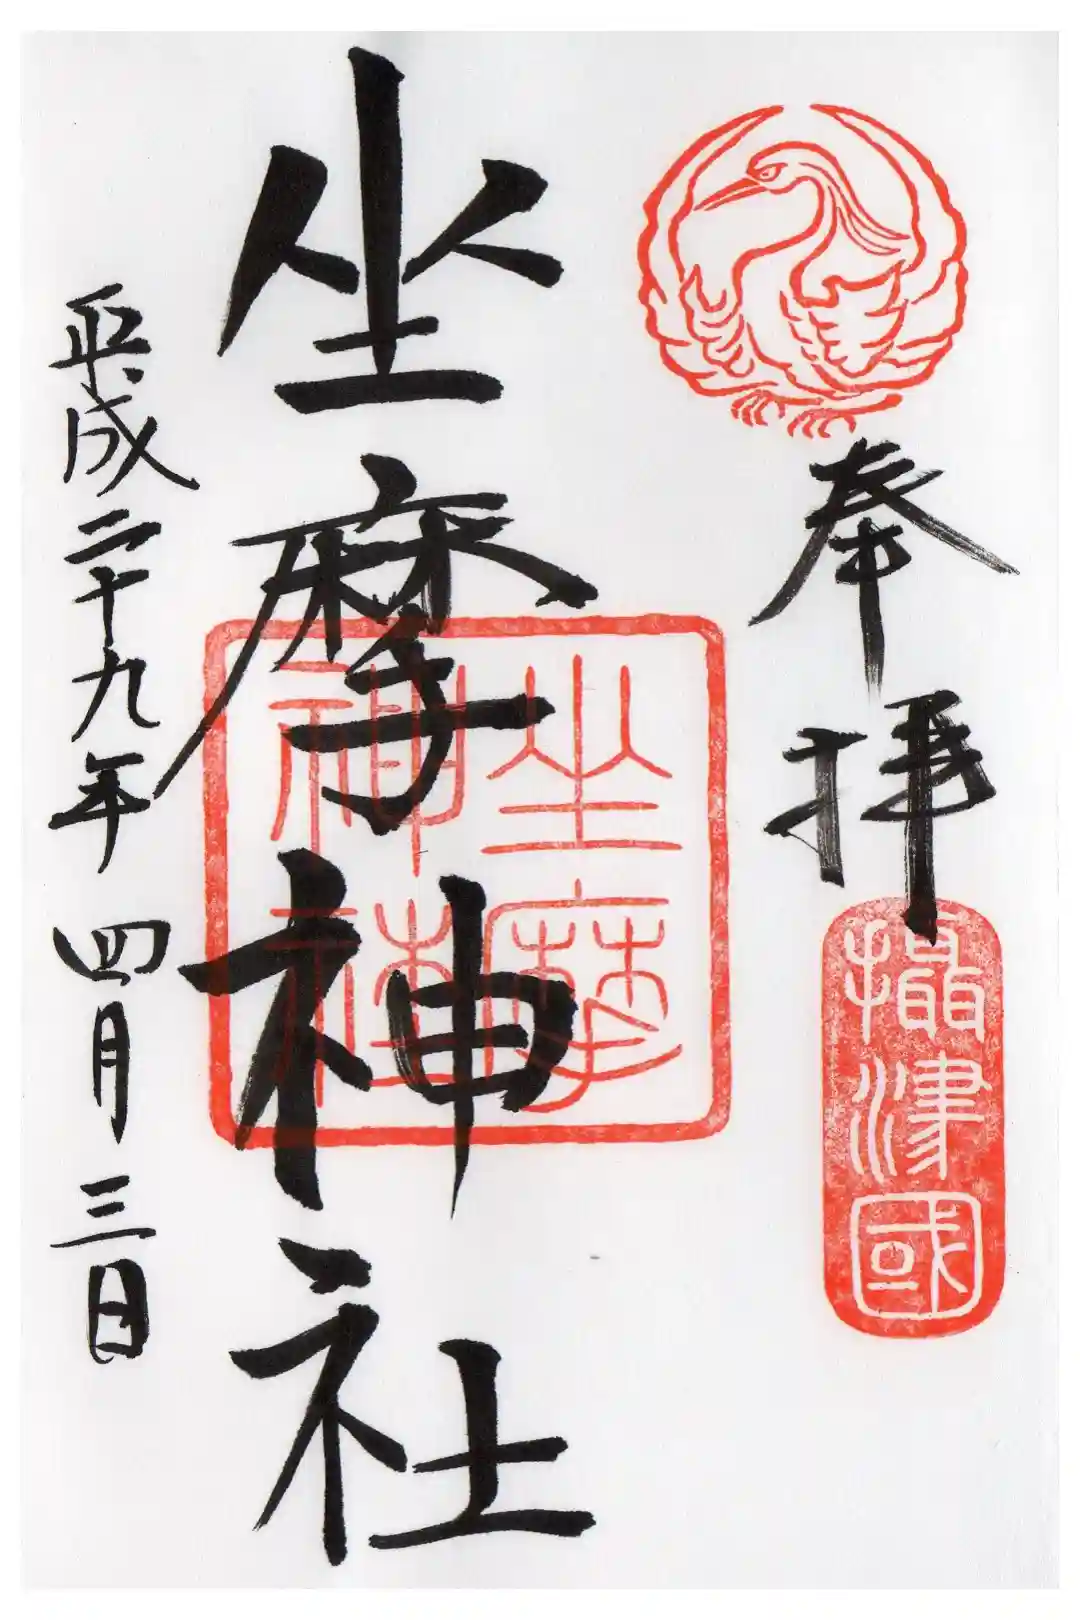 奉拝
攝津國
坐摩神社
坐摩神社
平成二十九年 四月三日